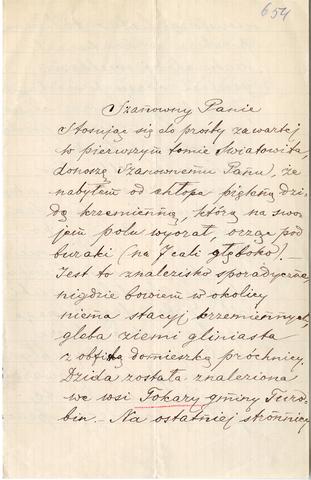 654
Szanowny Panie
Stosując się do prośby zawartej
w pierwszym tomie Światowita,
donoszę Szanownemu Panu, że
nabyłem od chłopa piękną dzi-
dę krzemienną, którą na swo-
jem polu wyorał, orząc pod
buraki (na 7 cali głęboko).—
Jest to znalezisko sporadyczne,
nigdzie bowiem w okolicy
niema stacyj krzemiennych,
gleba ziemi gliniasta
z obfitą domieszką próchnicy.
Dzida została znaleziona
we wsi Tokary gminy Turo-
bin.— Na ostatniej stronnicy